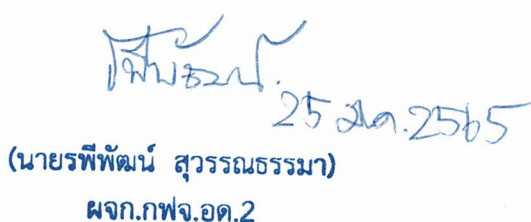 รพีพัฒน์
25 มี.ค. 2565
(นายรพีพัฒน์ สุวรรณธรรมา)
ผจก.กฟจ.อด.2